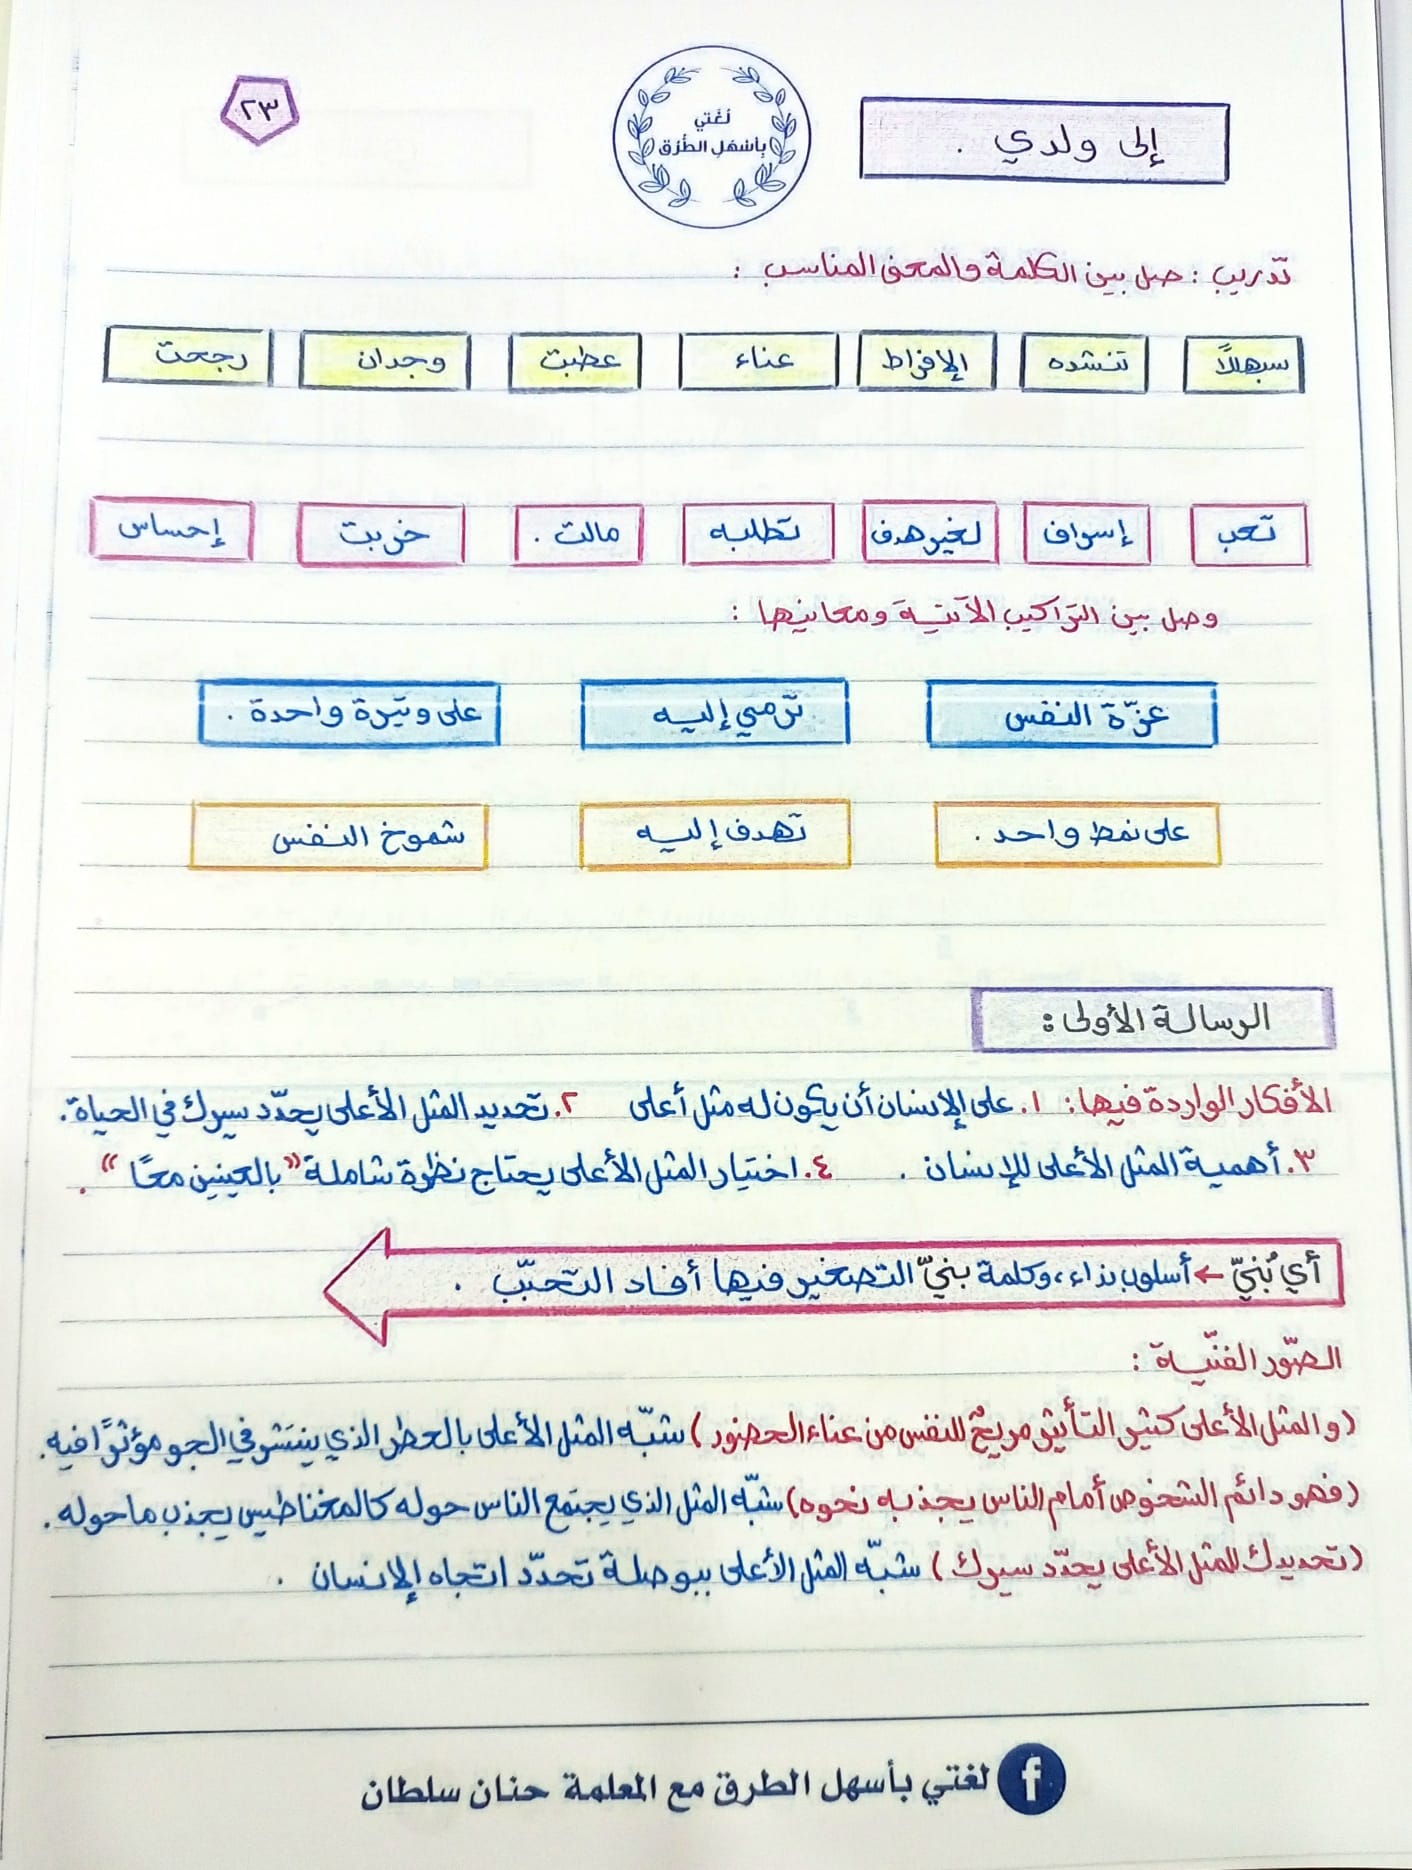 إلى ولدي .
لغتي
بأسهل الطرق
٢٣
تدريب : صل بين الكلمة والمعنى المناسب :
سبهللًا تنشده الإفراط عناء عطبت وجدان رجحت
تعب إسراف لغير هدف تطلبه مالت . خربت إحساس
وصل بين التراكيب الآتية ومعانيها :
عزّة النفس ترمي إليه على وتيرة واحدة .
على نمط واحد . تهدف إليه شموخ النفس
الرسالة الأولى :
الأفكار الواردة فيها : ١. على الإنسان أن يكون له مثل أعلى ٢. تحديد المثل الأعلى يحدّد سيرك في الحياة .
٣. أهمية المثل الأعلى للإنسان . ٤. اختيار المثل الأعلى يحتاج نظرة شاملة " بالعينين معًا " .
أي بُنيّ ← أسلوب نداء، وكلمة بنيّ التصغير فيها أفاد التحبّب .
الصّور الفنّية :
(والمثل الأعلى كثير التأثير مريحٌ للنفس من عناء الحضور) شبّه المثل الأعلى بالعطر الذي ينتشر في الجو مؤثرًا فيه .
(فهو دائم الشخوص أمام الناس يجذبه نحوه) شبّه المثل الذي يجتمع الناس حوله كالمغناطيس يجذب ما حوله .
(تحديدك للمثل الأعلى يحدّد سيرك) شبّه المثل الأعلى ببوصلة تحدّد اتجاه الإنسان .
لغتي بأسهل الطرق مع المعلمة حنان سلطان